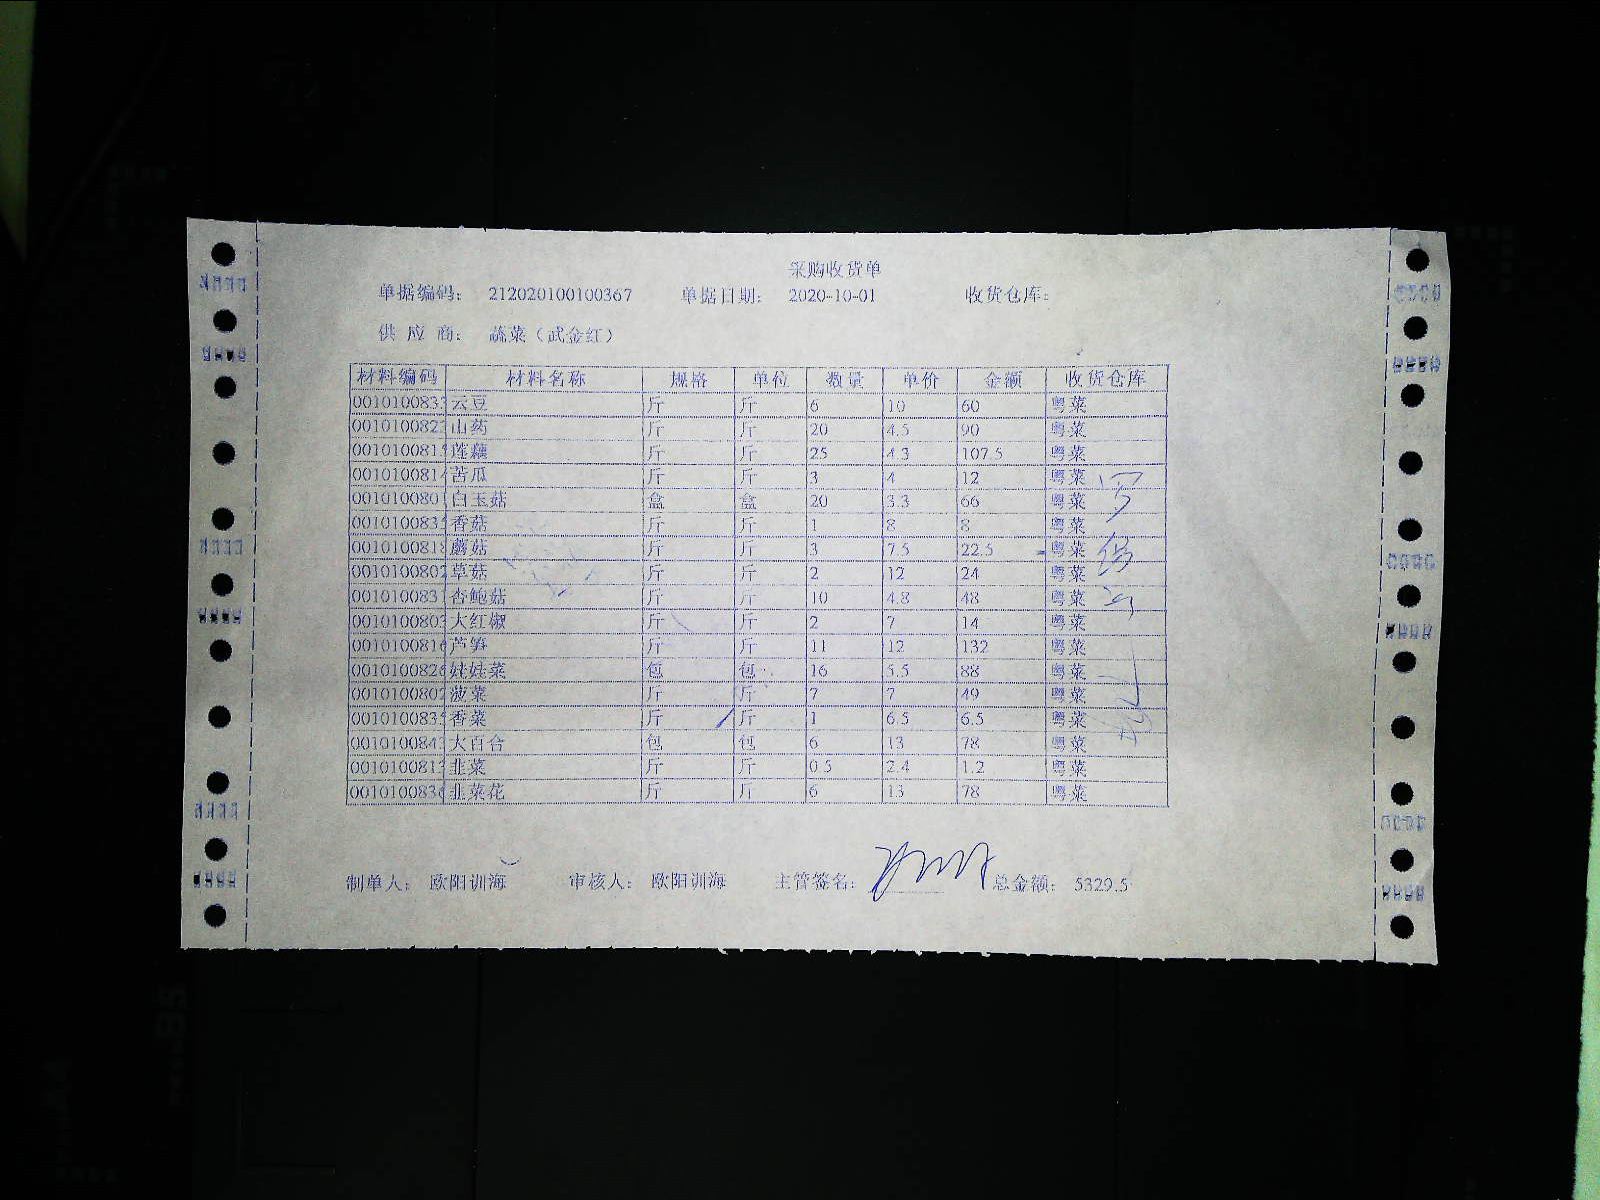 采购收货单
单据编码： 212020100100367 单据日期： 2020-10-01 收货仓库：
供 应 商： 蔬菜（武金红）
材料编码 材料名称 规格 单位 数量 单价 金额 收货仓库
001010083 云豆 斤 斤 6 10 60 粤菜
001010082 山药 斤 斤 20 4.5 90 粤菜
001010081 莲藕 斤 斤 25 4.3 107.5 粤菜
001010081 苦瓜 斤 斤 3 4 12 粤菜
001010080 白玉菇 盒 盒 20 3.3 66 粤菜
001010083 香菇 斤 斤 1 8 8 粤菜
001010081 蘑菇 斤 斤 3 7.5 22.5 粤菜
001010080 草菇 斤 斤 2 12 24 粤菜
001010083 杏鲍菇 斤 斤 10 4.8 48 粤菜
001010080 大红椒 斤 斤 2 7 14 粤菜
001010081 芦笋 斤 斤 11 12 132 粤菜
001010082 娃娃菜 包 包 16 5.5 88 粤菜
001010080 菠菜 斤 斤 7 7 49 粤菜
001010083 香菜 斤 斤 1 6.5 6.5 粤菜
001010084 大百合 包 包 6 13 78 粤菜
001010081 韭菜 斤 斤 0.5 2.4 1.2 粤菜
001010083 韭菜花 斤 斤 6 13 78 粤菜
制单人： 欧阳训海 审核人： 欧阳训海 主管签名： 总金额： 5329.5